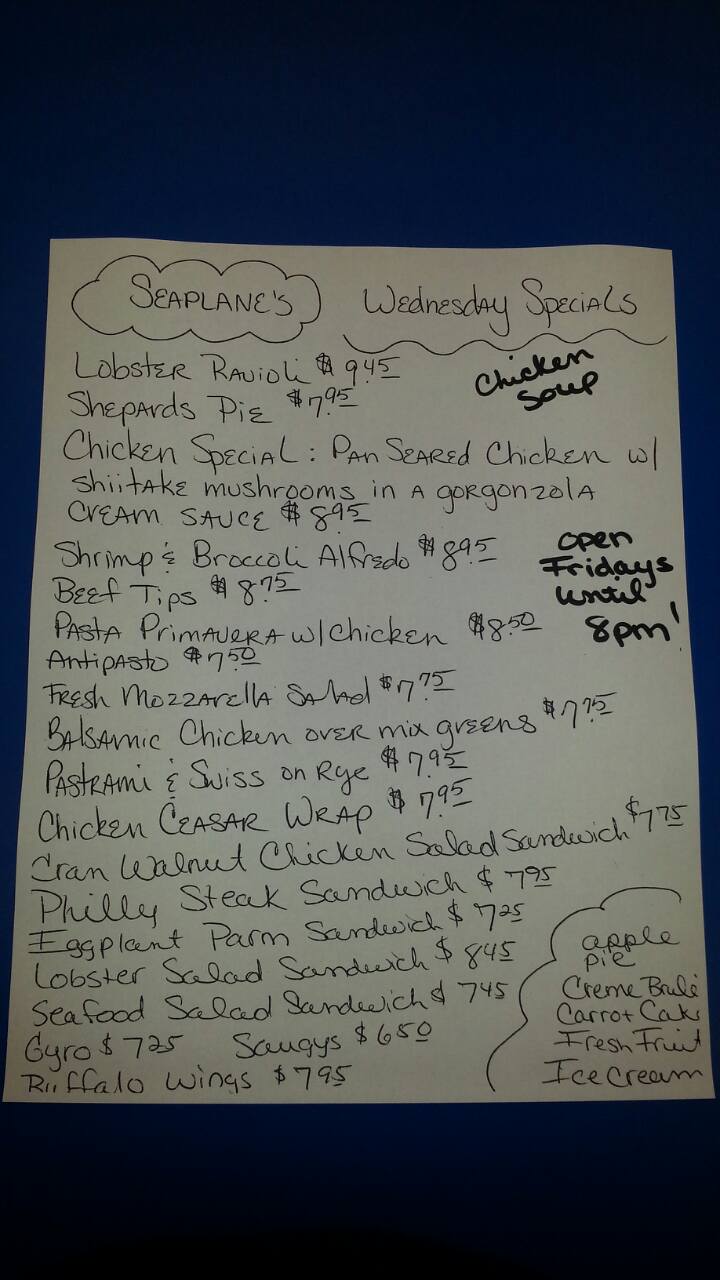 SEAPLANE'S
Wednesday Specials
Lobster Ravioli $9.45
Chicken
soup
Shepards Pie $7.95
Chicken Special: Pan Seared Chicken w/
shiitake mushrooms in a gorgonzola
cream sauce $8.95
Shrimp & Broccoli Alfredo $8.95
open
Fridays
until
8pm!
Beef Tips $8.75
Pasta Primavera w/chicken $8.50
Antipasto $7.50
Fresh Mozzarella Salad $7.75
Balsamic Chicken over mix greens $7.75
Pastrami & Swiss on Rye $7.95
Chicken Ceasar Wrap $7.95
Cran Walnut Chicken Salad Sandwich $7.75
Philly Steak Sandwich $7.95
Eggplant Parm Sandwich $7.25
Lobster Salad Sandwich $8.45
Seafood Salad Sandwich $7.45
Gyro $7.25 Saugys $6.50
Buffalo Wings $7.95
apple
pie
Creme Brulé
Carrot Cake
Fresh Fruit
Ice cream